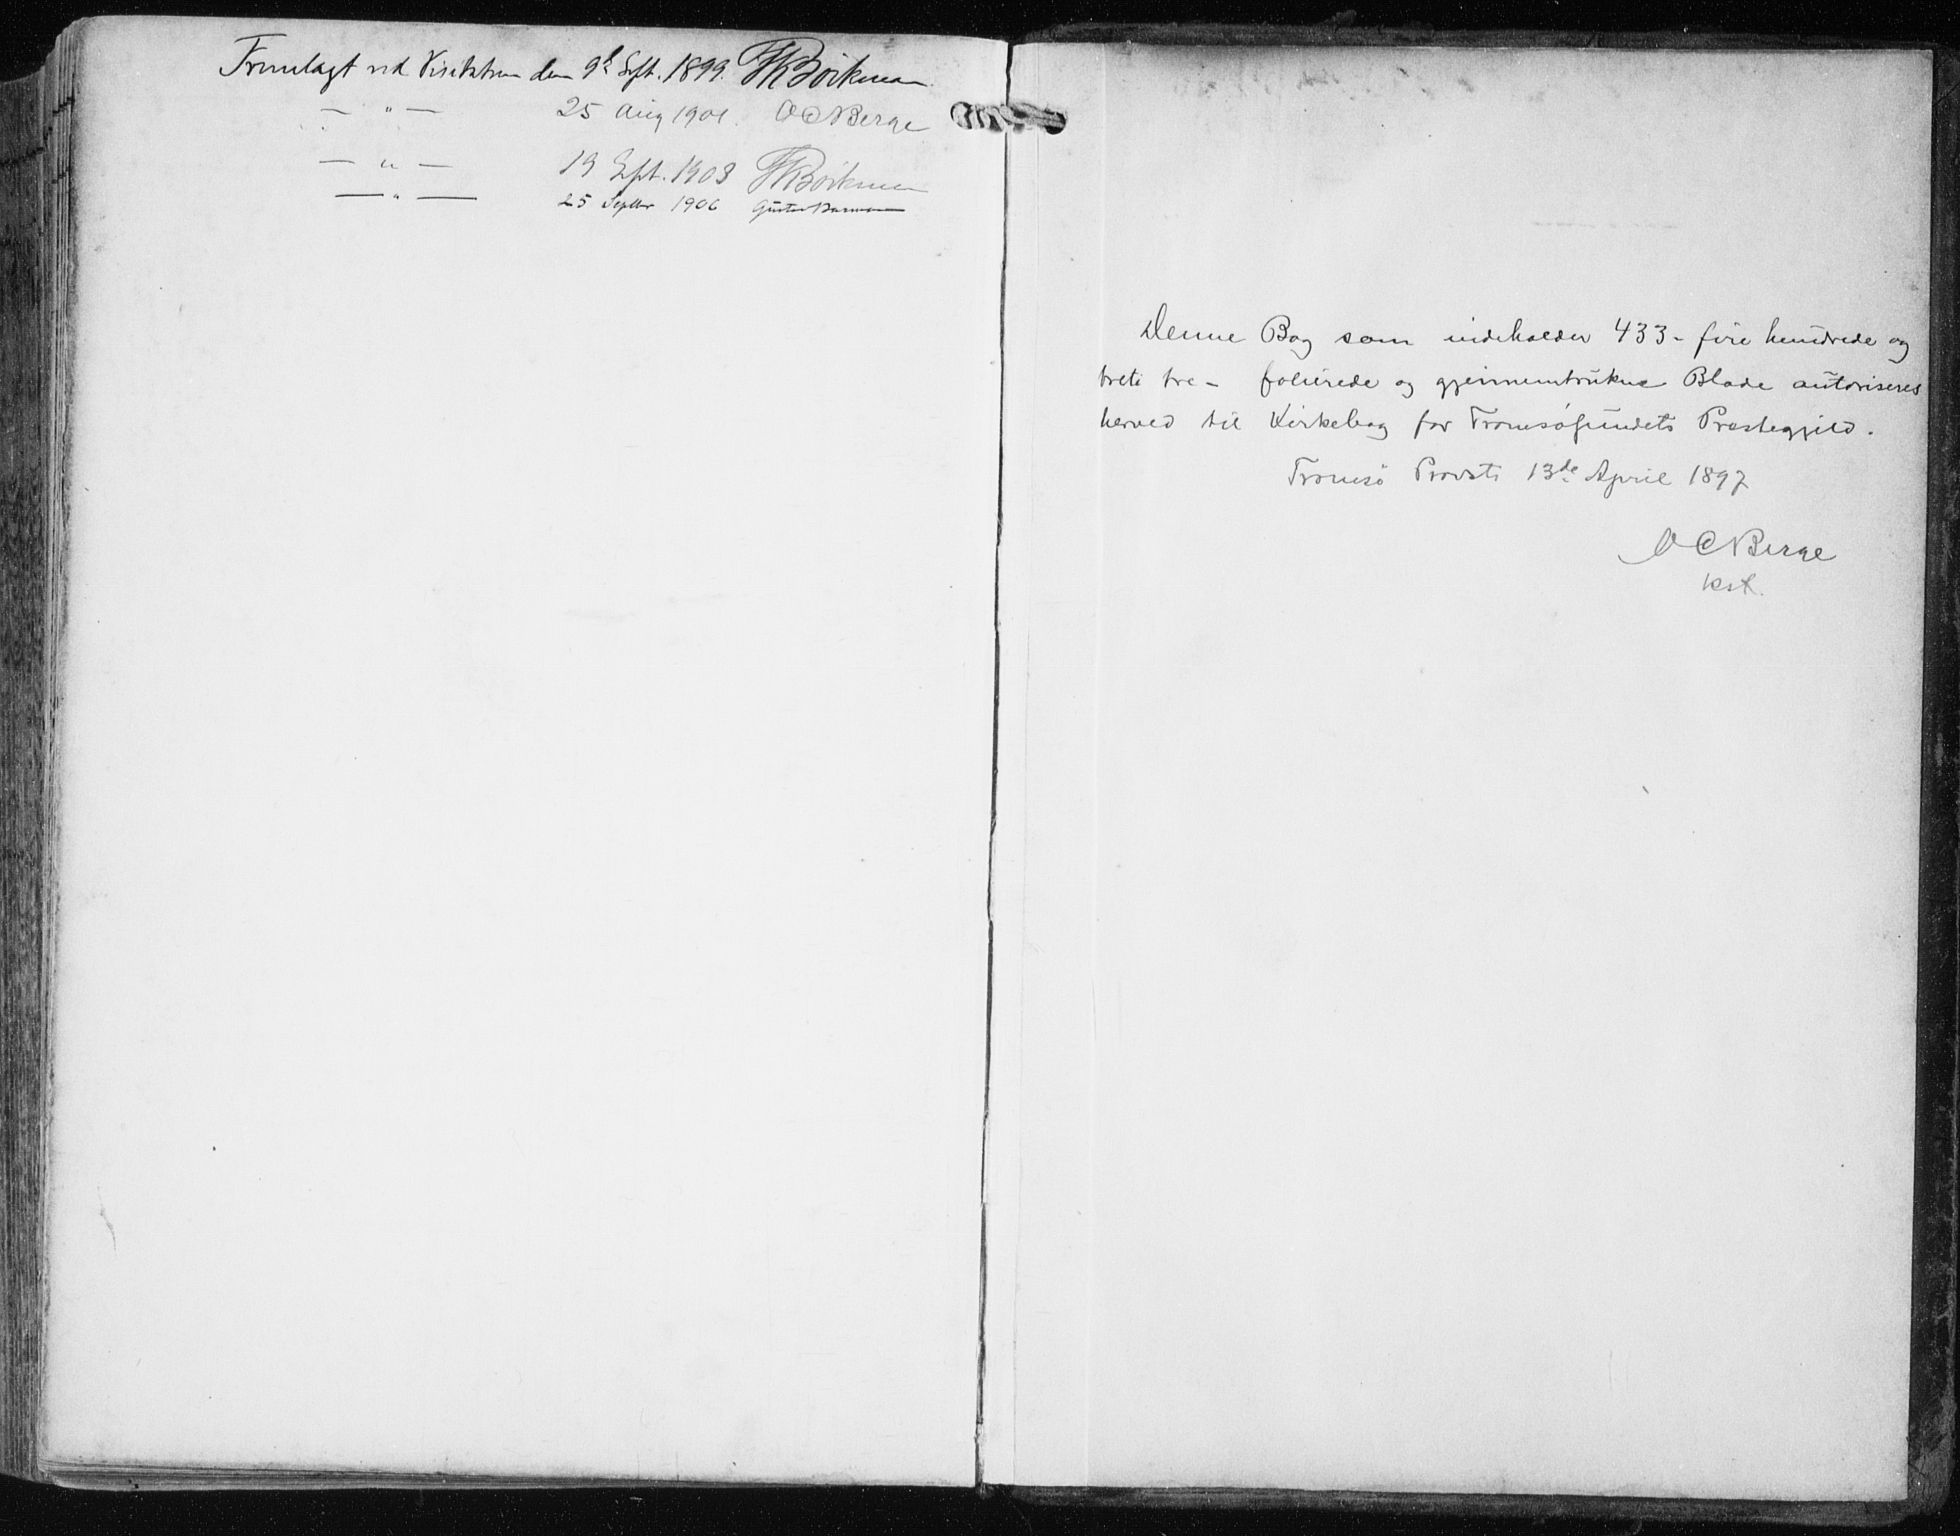 Fremlagt ved Visitatsen den 9d Sept. 1899. Bøckman.
— " — 25 Aug 1901. O C Berge
— " — 19 Sept. 1903 Bøckman
— " — 25 Septbr 1906
Denne Bog som indeholder 433 - fire hundrede og
treti tre - folierede og gjennemtrukne Blade autoriseres
herved til Kirkebog for Tromsøsundets Præstegjeld.
Tromsø Provsti 13de April 1897
O C Berge
kst.